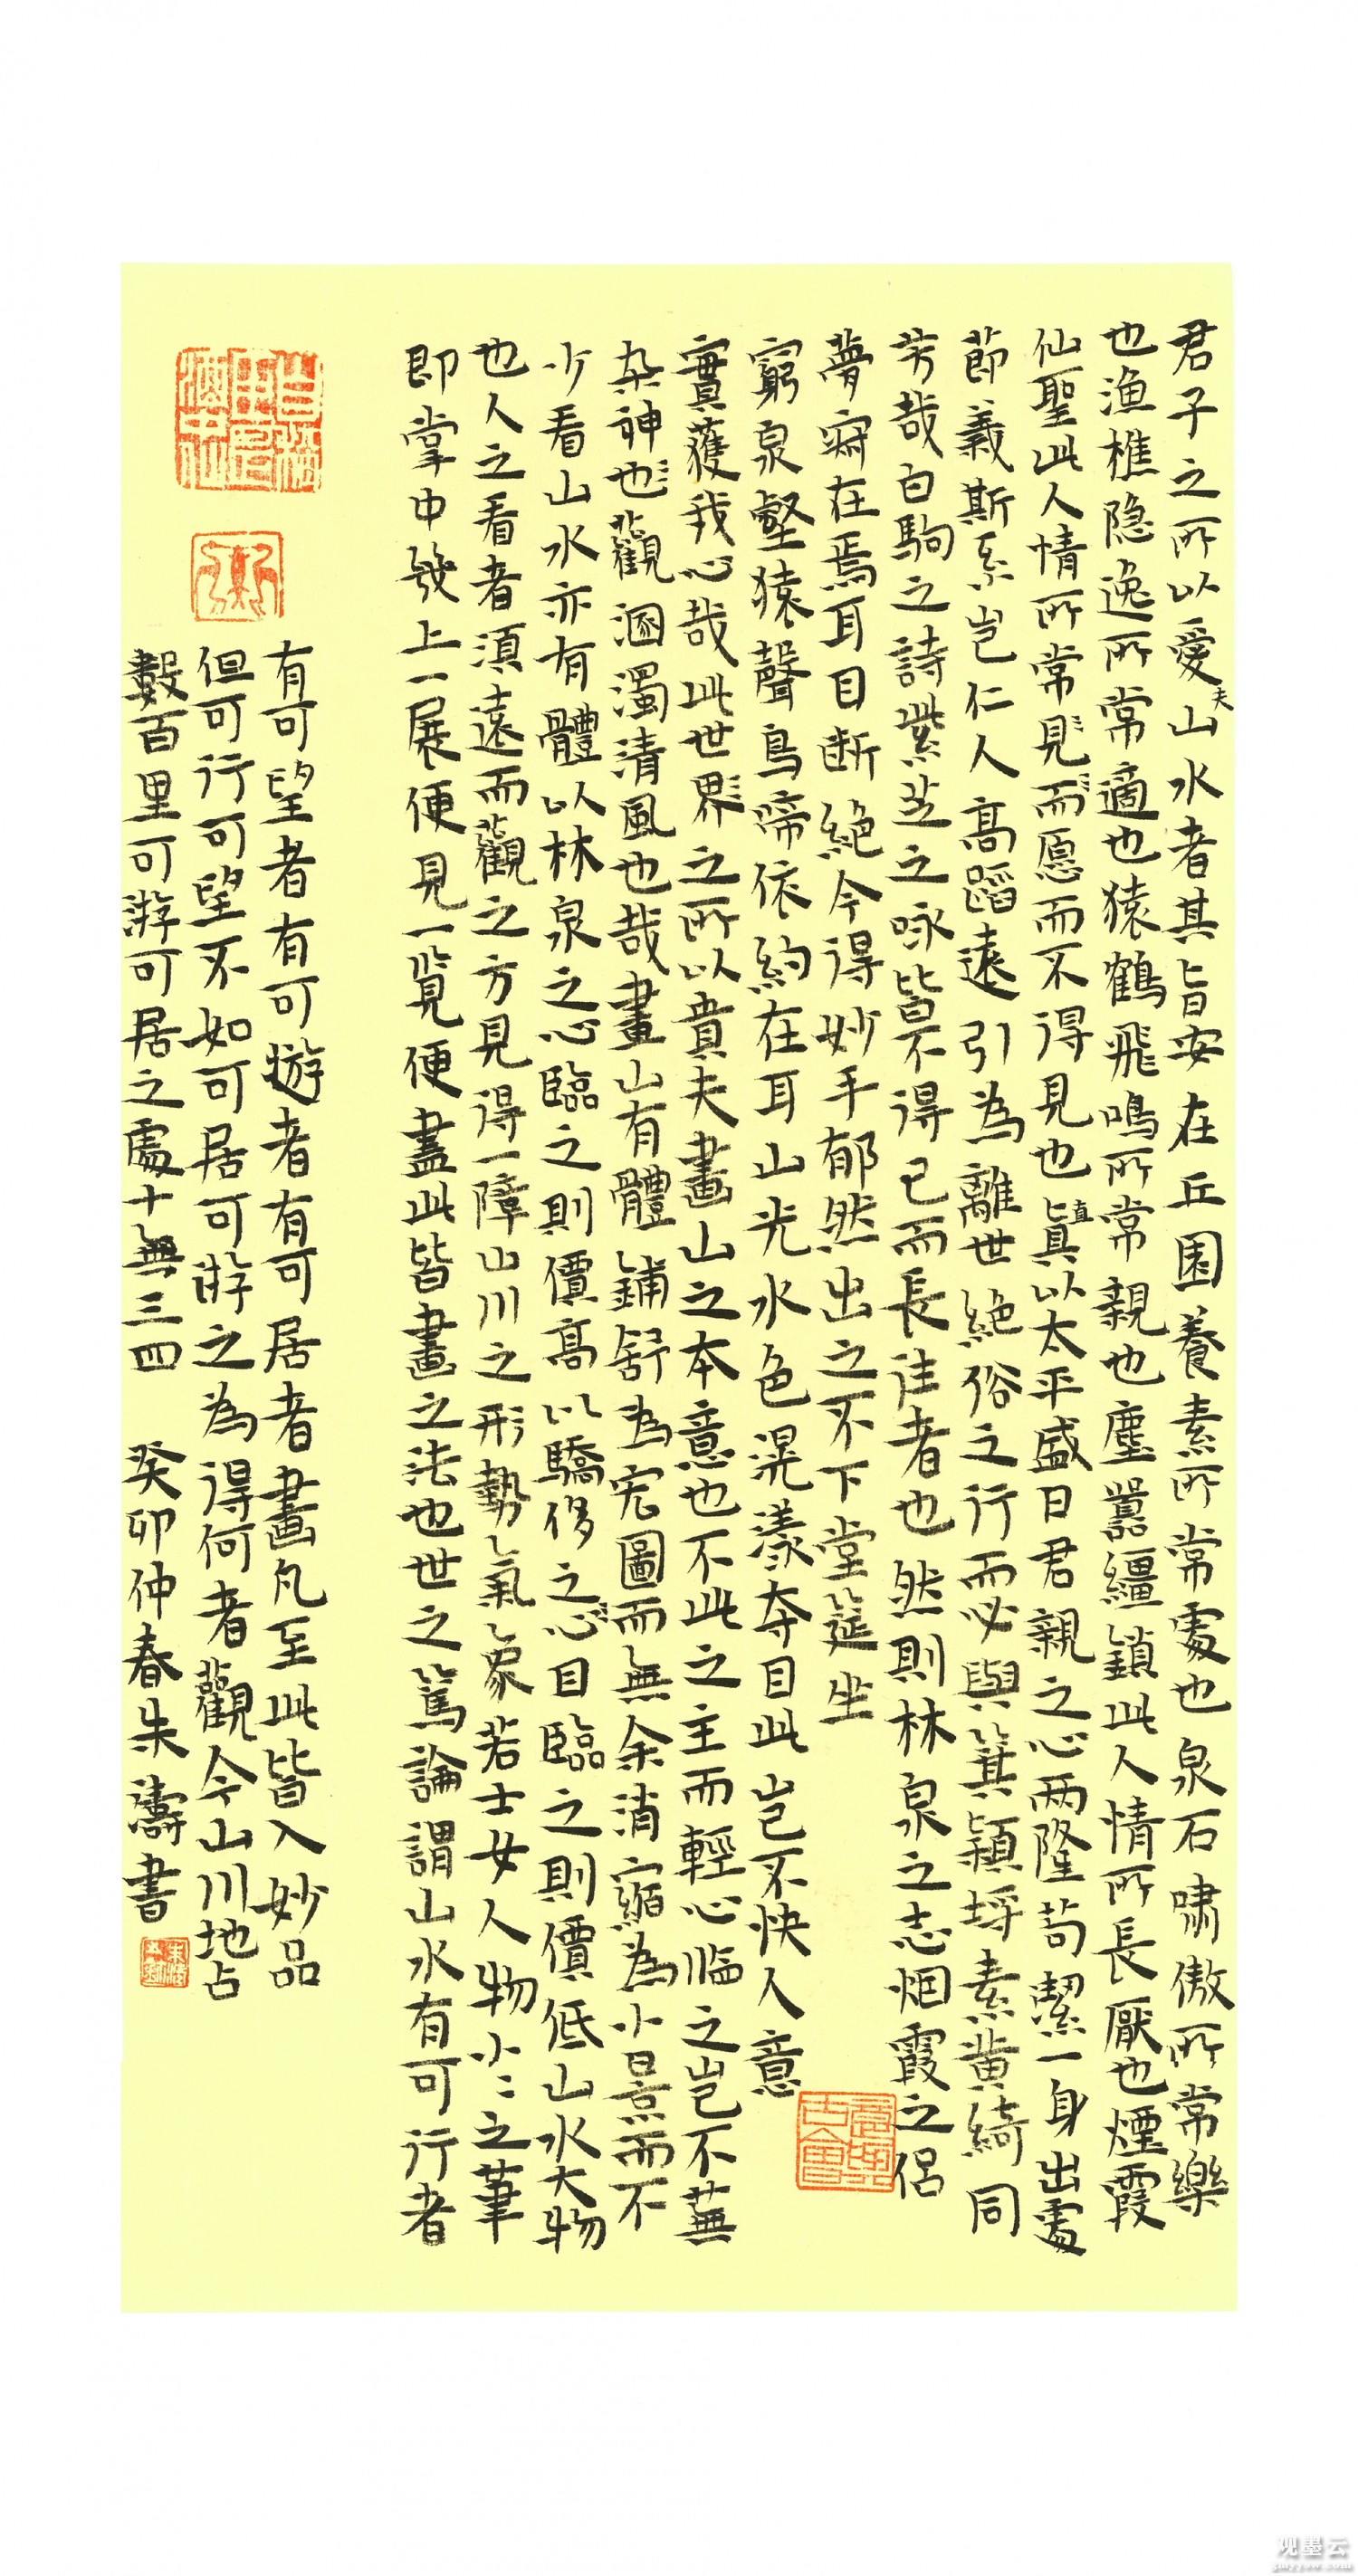 君子之所以愛夫山水者其旨安在丘園養素所常處也泉石嘯傲所常樂
也漁樵隐逸所常適也猿鶴飛鳴所常親也塵囂繮鎖此人情所長厭也煙霞
仙聖此人情所常見而愿而不得見也真以太平盛日君親之心两隆苟潔一身出處
節義斯系岂仁人高蹈遠引為離世絶俗之行而必與箕穎埒素黄綺同
芳哉白駒之詩紫芝之咏皆不得已而長往者也然則林泉之志烟霞之侣
夢寐在焉耳目断絶今得妙手郁然出之不下堂筵坐
窮泉壑猿聲鳥啼依約在耳山光水色滉漾夺目此岂不快人意
實獲我心哉此世界之所以貴夫畫山之本意也不此之主而輕心临之岂不蕪
杂神也觀溷濁清風也哉畫山有體鋪舒為宏圖而無余消縮為小景而不
少看山水亦有體以林泉之心臨之則價高以驕侈之心目臨之則價低山水大物
也人之看者須遠而觀之方見得一障山川之形勢氣象若士女人物小〻之筆
即掌中幾上一展便見一覧便盡此皆畫之法也世之篤論謂山水有可行者
有可望者有可遊者有可居者畫凡至此皆入妙品
但可行可望不如可居可游之為得何者觀今山川地占
數百里可游可居之處十無三四 癸卯仲春朱濤書
观墨云